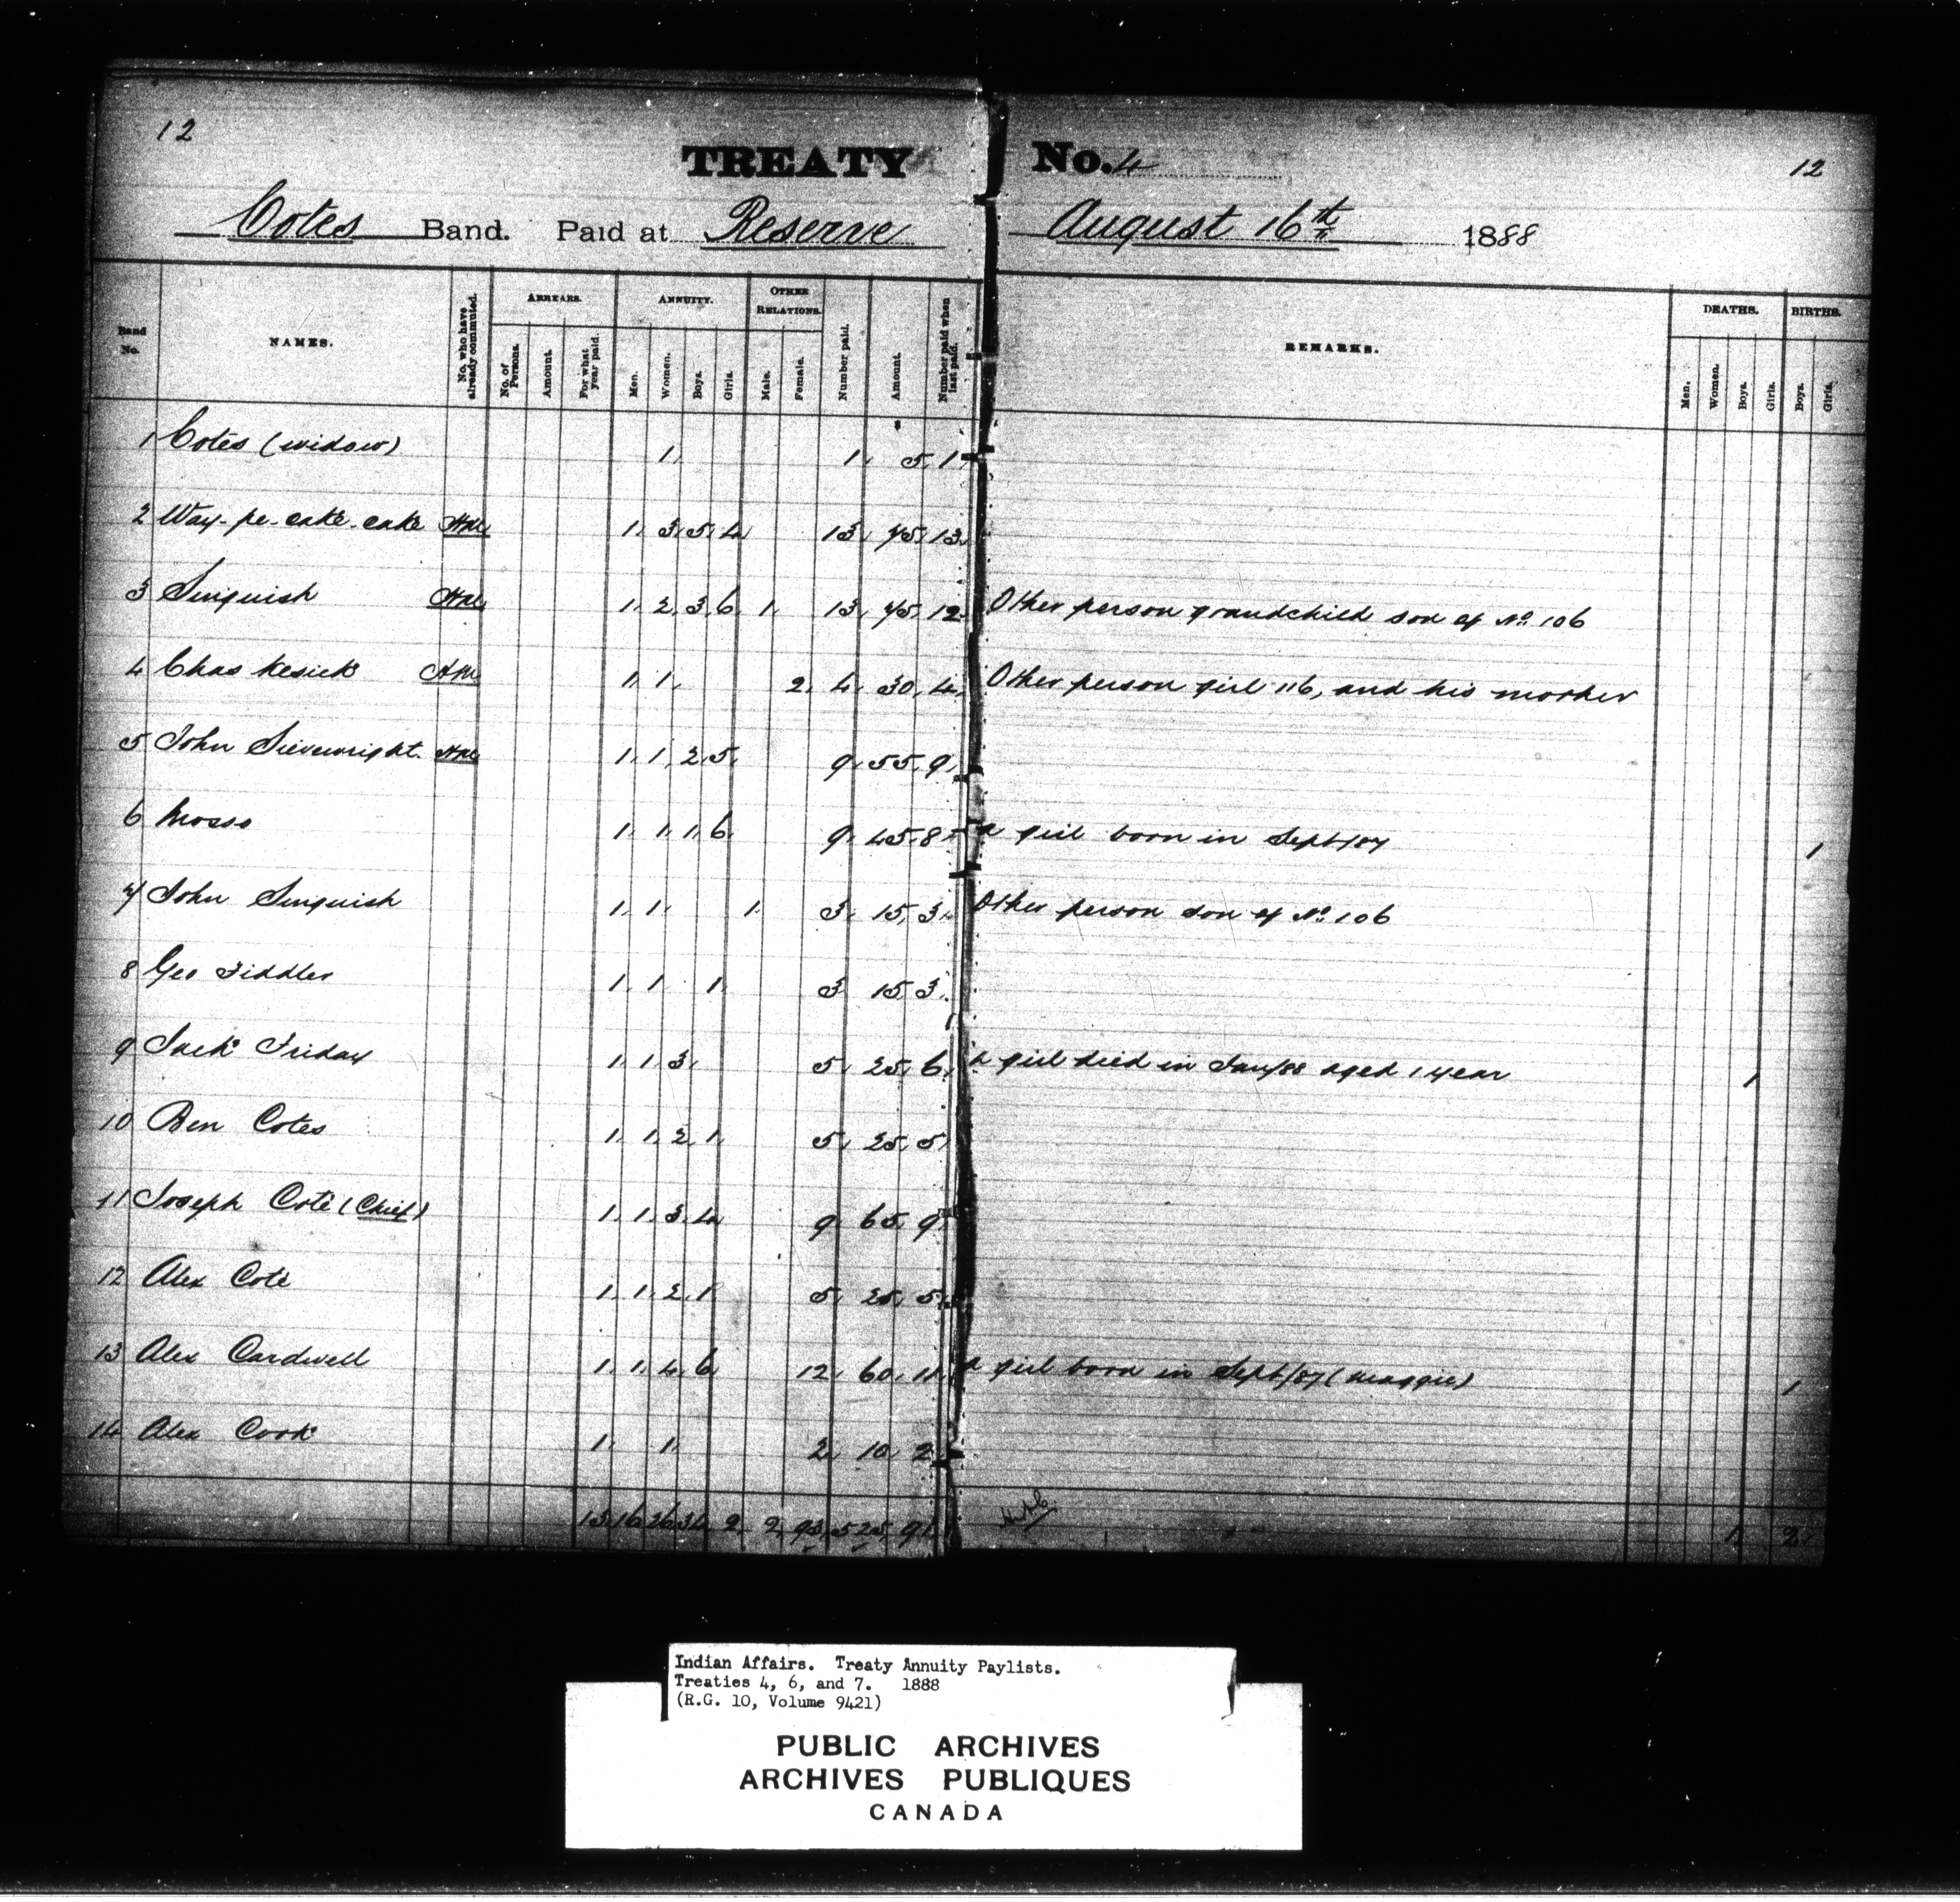 12
12
TREATY No. 4
Cotes Band. Paid at Reserve August 16th 1888
Band No.
NAMES.
No. who have already commuted.
ARREARS.
No. of Persons.
Amount.
For what year paid.
ANNUITY.
Men.
Women.
Boys.
Girls.
OTHER RELATIONS.
Male.
Female.
Number paid.
Amount.
Number paid when last paid.
REMARKS.
DEATHS.
Men.
Women.
Boys.
Girls.
BIRTHS.
Boys.
Girls.
1 Cotes (widow) 1 1 5 1
2 Way-pe-cake-cake 1 3 5 4 13 75 13
3 Sinquish 1 2 3 6 1 13 75 12 Other person grandchild son of No 106
4 Chas Kesick 1 1 2 4 30 4 Other person girl 116, and his mother
5 John Sievewright. 1 1 2 5 9 55 9
6 Moses 1 1 1 6 9 45 8 a girl born in Sept/87 1
7 John Sinquish 1 1 1 3 15 3 Other person son of No 106
8 Geo Fiddler 1 1 1 3 15 3
9 Jack Friday 1 1 3 5 25 6 a girl died in Jany/88 aged 1 year 1
10 Ben Cotes 1 1 2 1 5 25 5
11 Joseph Coté (Chief) 1 1 3 4 9 65 9
12 Alex Coté 1 1 2 1 5 25 5
13 Alex Cardwell 1 1 4 6 12 60 11 a girl born in Sept/87 (Maggie) 1
14 Alex Cook 1 1 2 10 2
13 16 26 34 2 2 93 525 91 1 2
Indian Affairs. Treaty Annuity Paylists.
Treaties 4, 6, and 7. 1888
(R.G. 10, Volume 9421)
PUBLIC ARCHIVES
ARCHIVES PUBLIQUES
CANADA